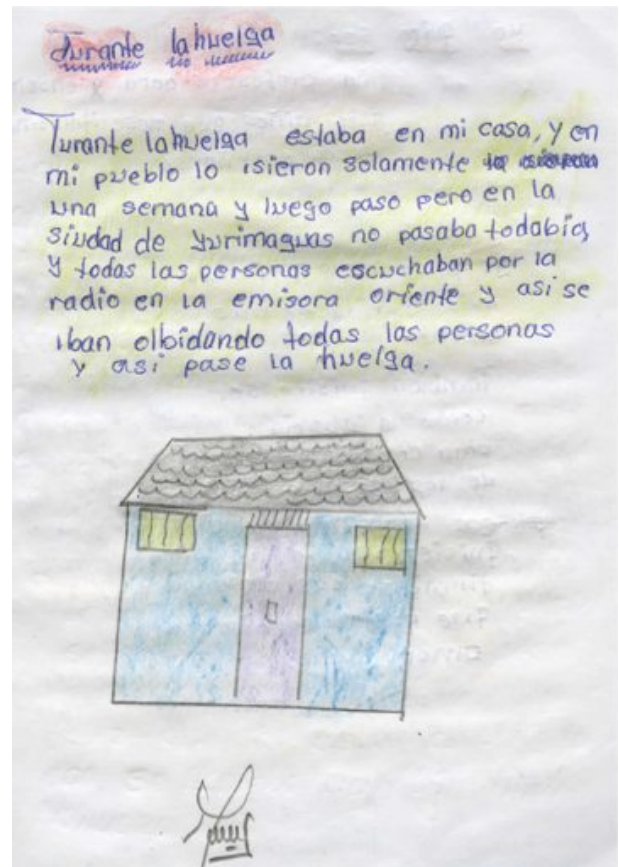 Durante la huelga
Durante la huelga estaba en mi casa, y en
mi pueblo lo isieron solamente
una semana y luego paso pero en la
siudad de Yurimaguas no pasaba todabia,
y todas las personas escuchaban por la
radio en la emisora oriente y asi se
iban olbidando todas las personas
y asi pase la huelga.